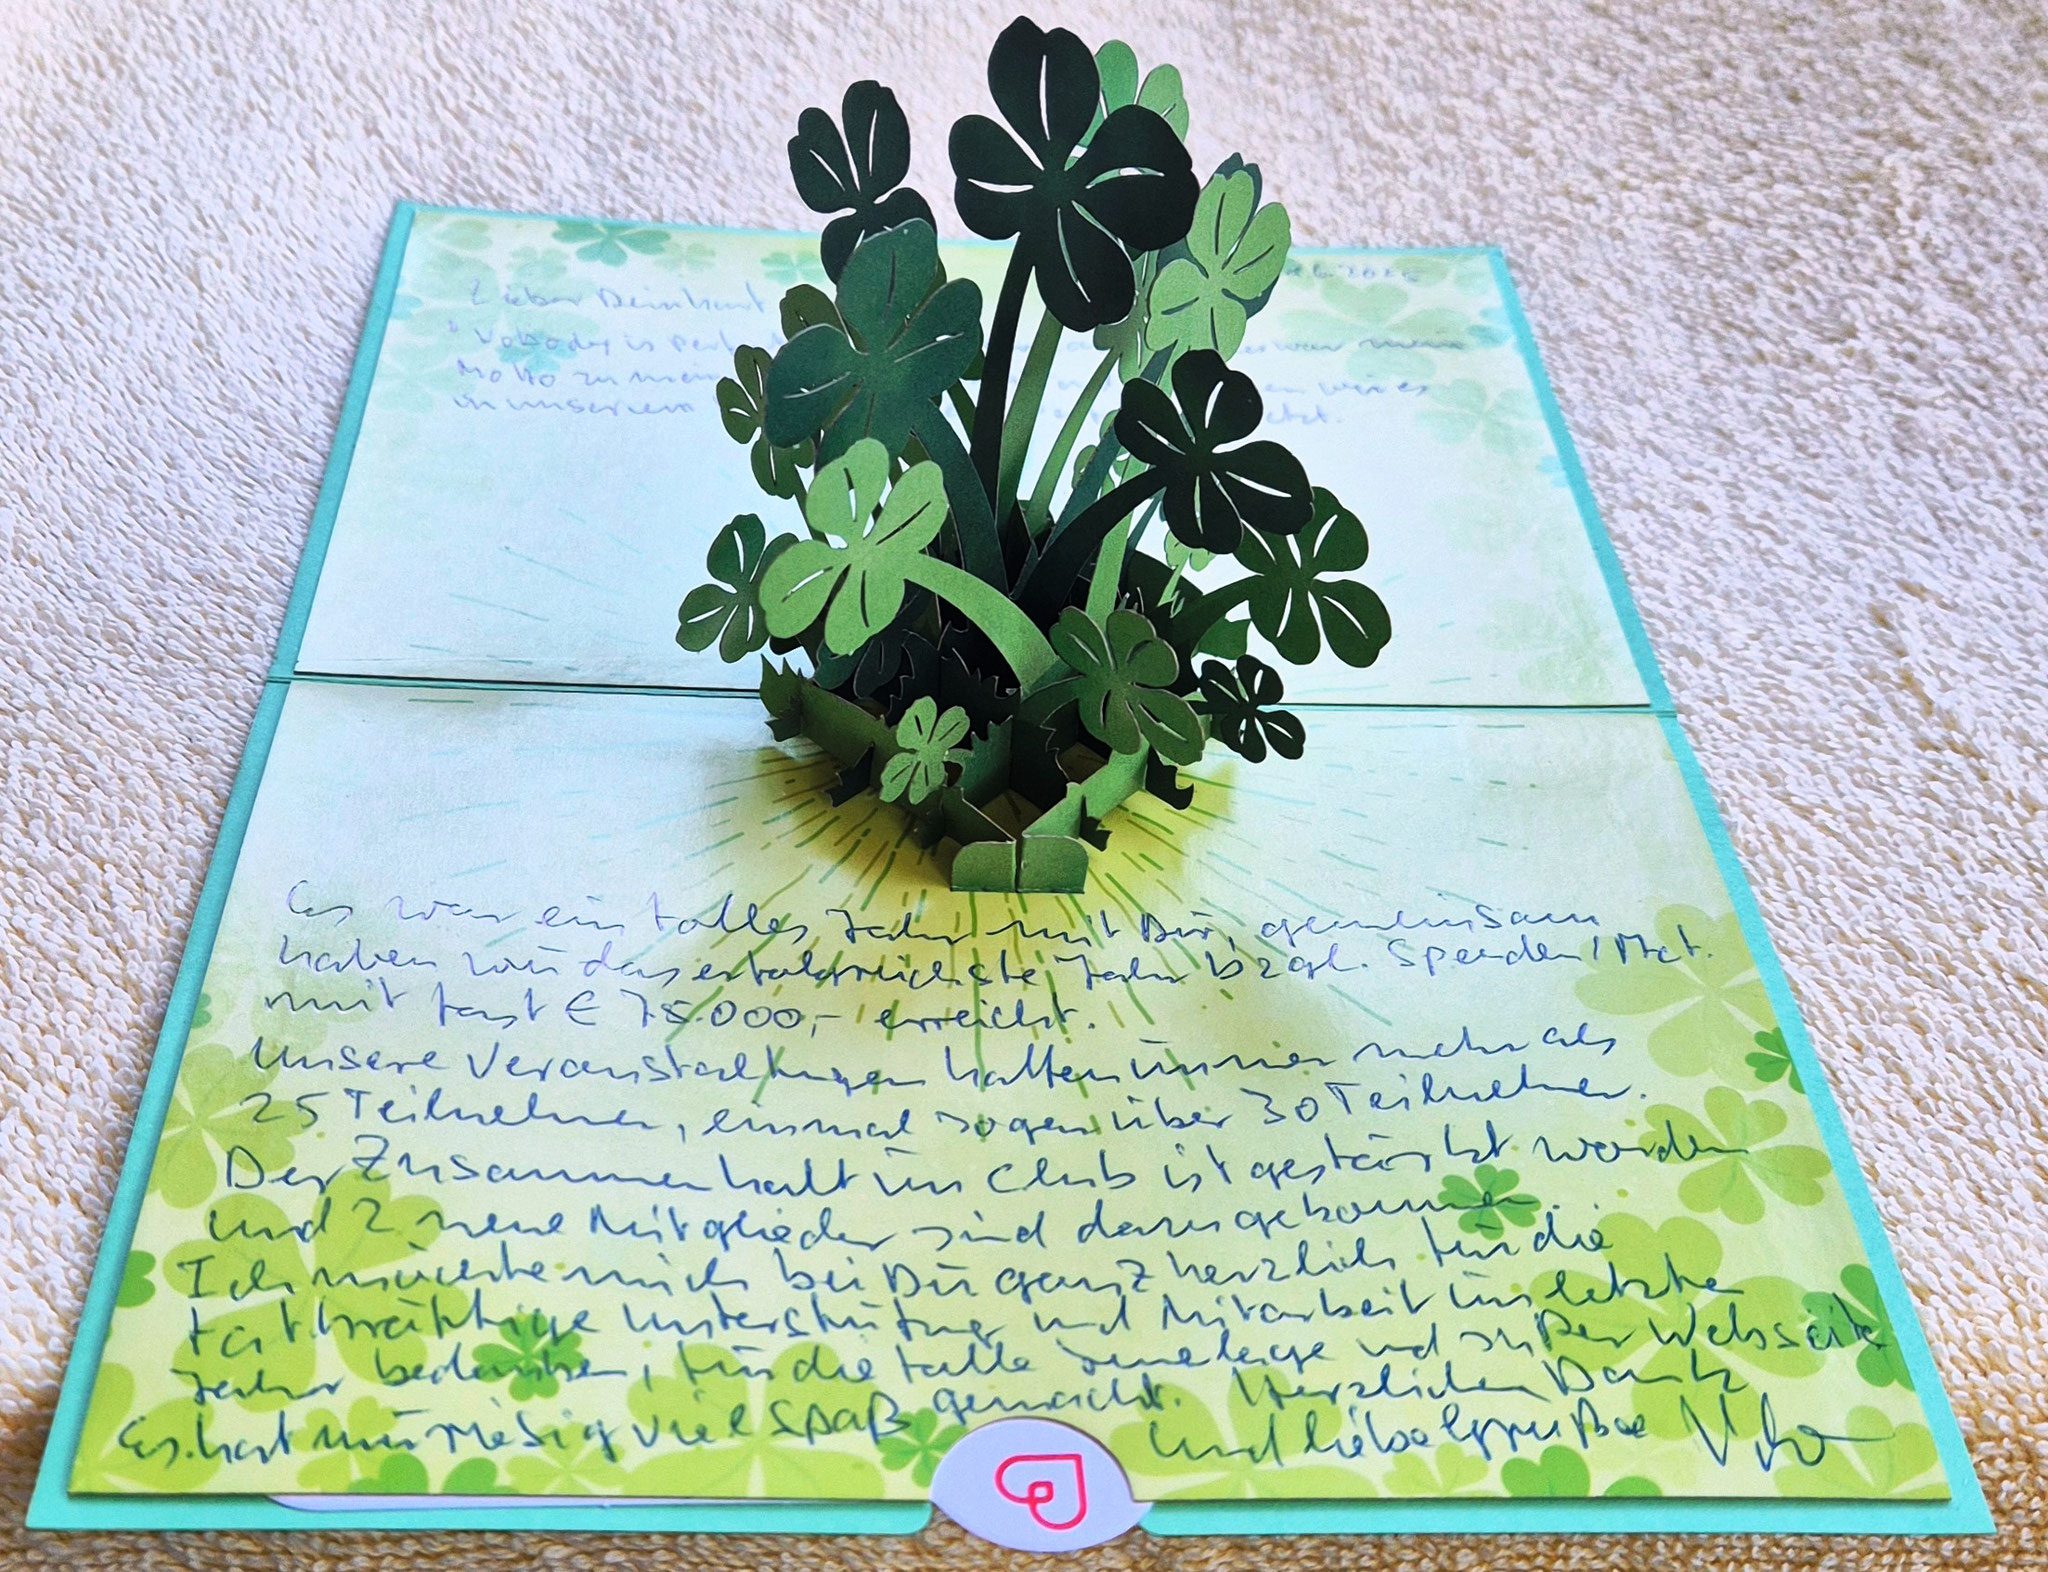 Lieber Deinhart
"Nobody is perf
es war mein
Motto zu mein
wir es
in unserem
Es war ein tolles Jahr mit Dir, gemeinsam
haben wir das erfolgreichste Jahr bzgl. Spenden / Act.
mit fast € 75.000,- erreicht.
Unsere Veranstaltungen hatten immer mehr als
25 Teilnehmer, einmal sogar über 30 Teilnehmer.
Der Zusammenhalt im Club ist gestärkt worden
und 2 neue Mitglieder sind dazugekommen.
Ich möchte mich bei Dir ganz herzlich für die
tatkräftige Unterstützung und Mitarbeit im letzten
Jahr bedanken, für die tolle Homepage und super Webseite
Es hat mir riesig viel Spaß gemacht. Herzlichen Dank
und liebe Grüße